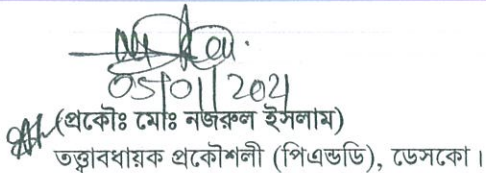 05/01/2021
(প্রকৌঃ মোঃ নজরুল ইসলাম)
তত্ত্বাবধায়ক প্রকৌশলী (পিএন্ডডি), ডেসকো।